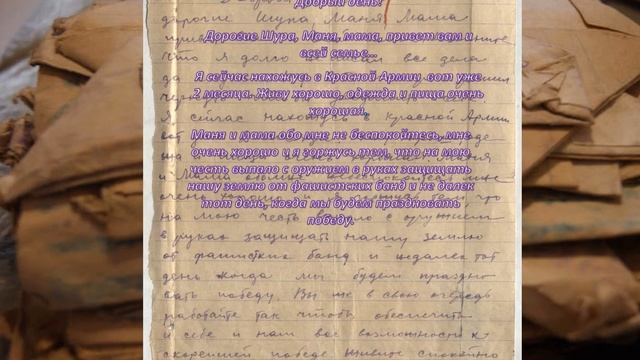 Добрый день!
Дорогие Шура, Маня, мама, привет вам и
всей семье...
Я сейчас нахожусь в Красной Армии вот уже
2 месяца. Живу хорошо, одежда и пища очень
хорошая.
Маня и мама обо мне не беспокойтесь, мне
очень хорошо и я горжусь тем, что на мою
честь выпало с оружием в руках защищать
нашу землю от фашистских банд и не далек
тот день, когда мы будем праздновать
победу.
дорогие Шура, Маня Мама
что я долго все дела
Я сейчас нахожусь в Красной Армии
на мою честь с оружием
в руках защищать нашу землю
от фашистких банд и недалек тот
день когда мы будем праздно
вать победу. Вы же в свою очередь
работайте так чтобы обеспечить
и себе и нам все возможности к
скорейшей победе живите спокойно